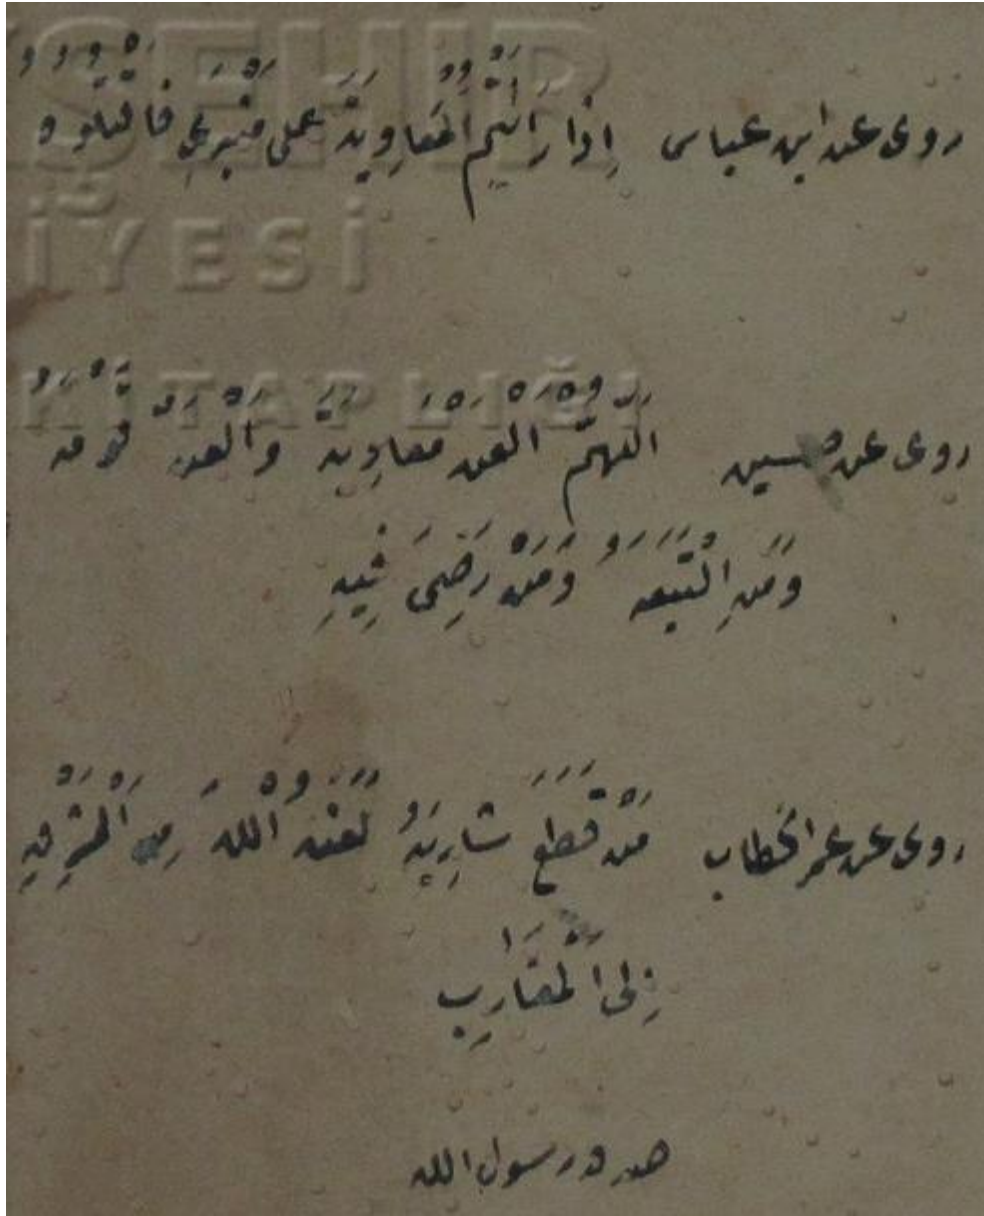 KŞEHİR
İYESİ
KİTAPLIĞI
روى عن ابن عباس اِذَا رَاَيْتُمُ الْمَعَاوِيَةَ عَلَى مِنْبَرِى فَاقْتُلُوهُ
روى عن حسين اَللّهُمَّ الْعَنْ مُعَاوِيَةَ وَالْعَنْ قَوْمَهُ
وَمَنِ اتَّبَعَهُ وَمَنْ رَضِىَ فِيهِ
روى عن عمر الخطاب مَنْ قَطَعَ شَارِبَهُ لَعْنَةُ اللّٰهِ مِنَ الْمَشْرِقِ
اِلَى الْمَغَارِبِ
صدق رسول الله